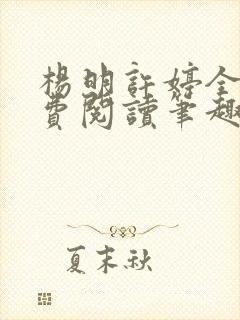 楊明許婷全
費閱讀筆趣
夏末秋